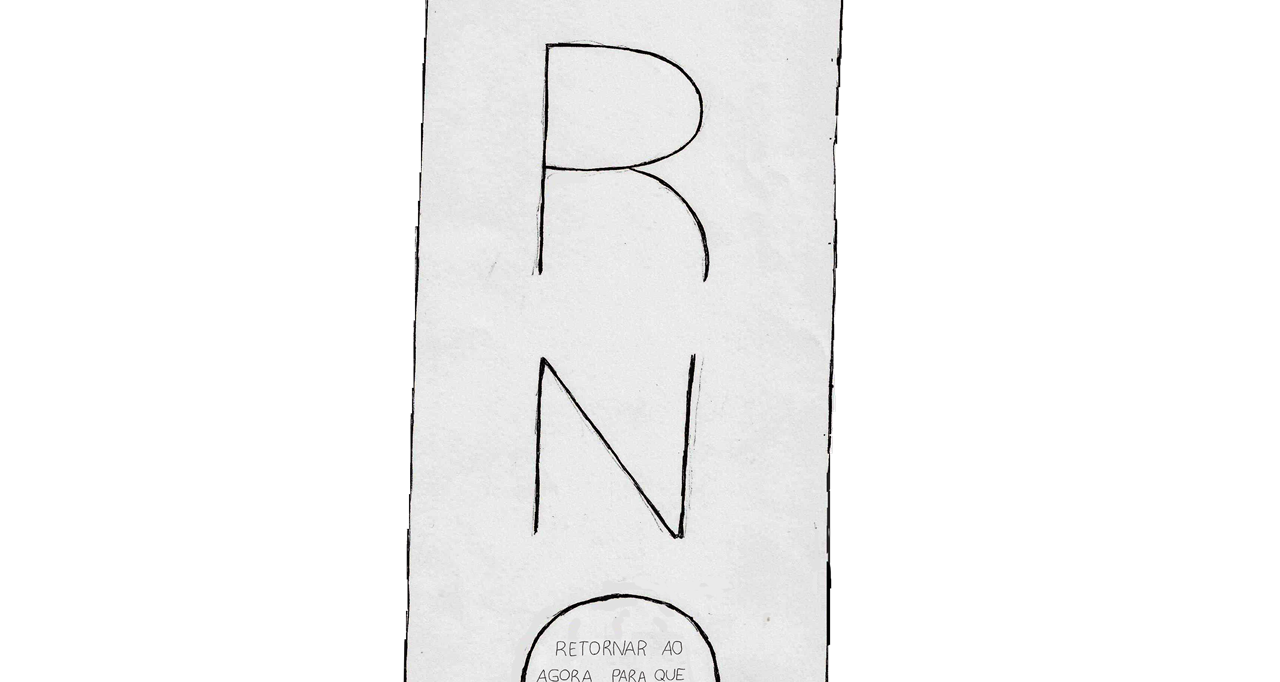 R
N
RETORNAR AO
AGORA PARA QUE